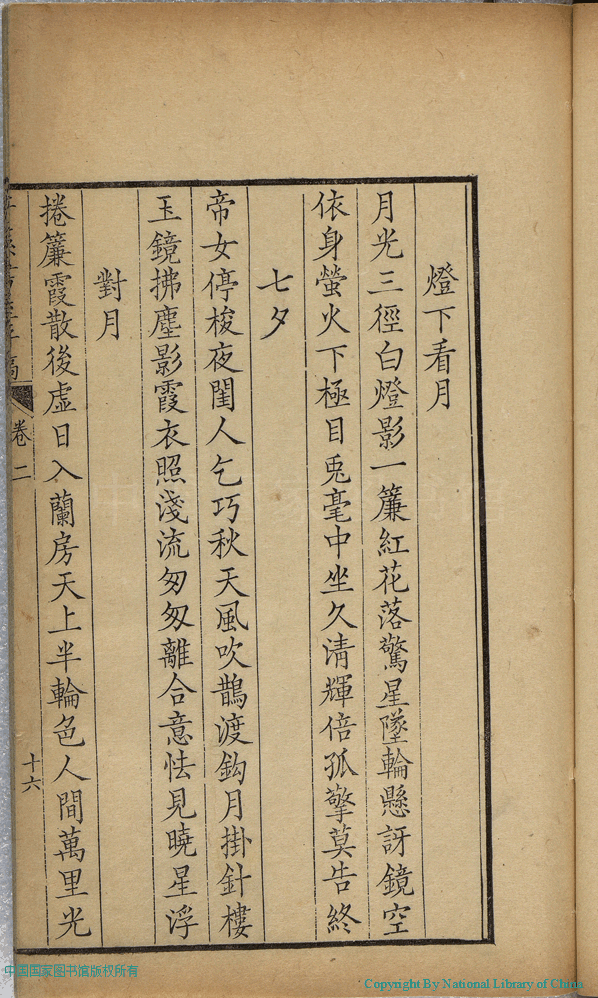 燈下看月
月光三徑白燈影一簾紅花落驚星墜輪懸訝鏡空
依身螢火下極目兎毫中坐久清輝倍孤擎莫告終
七夕
帝女停梭夜閨人乞巧秋天風吹鵲渡鈎月掛針樓
玉鏡拂塵影霞衣照淺流匆匆離合意怯見曉星浮
對月
捲簾霞散後虛日入蘭房天上半輪色人間萬里光
卷二
十六
中国国家图书馆版权所有
Copyright By National Library of China